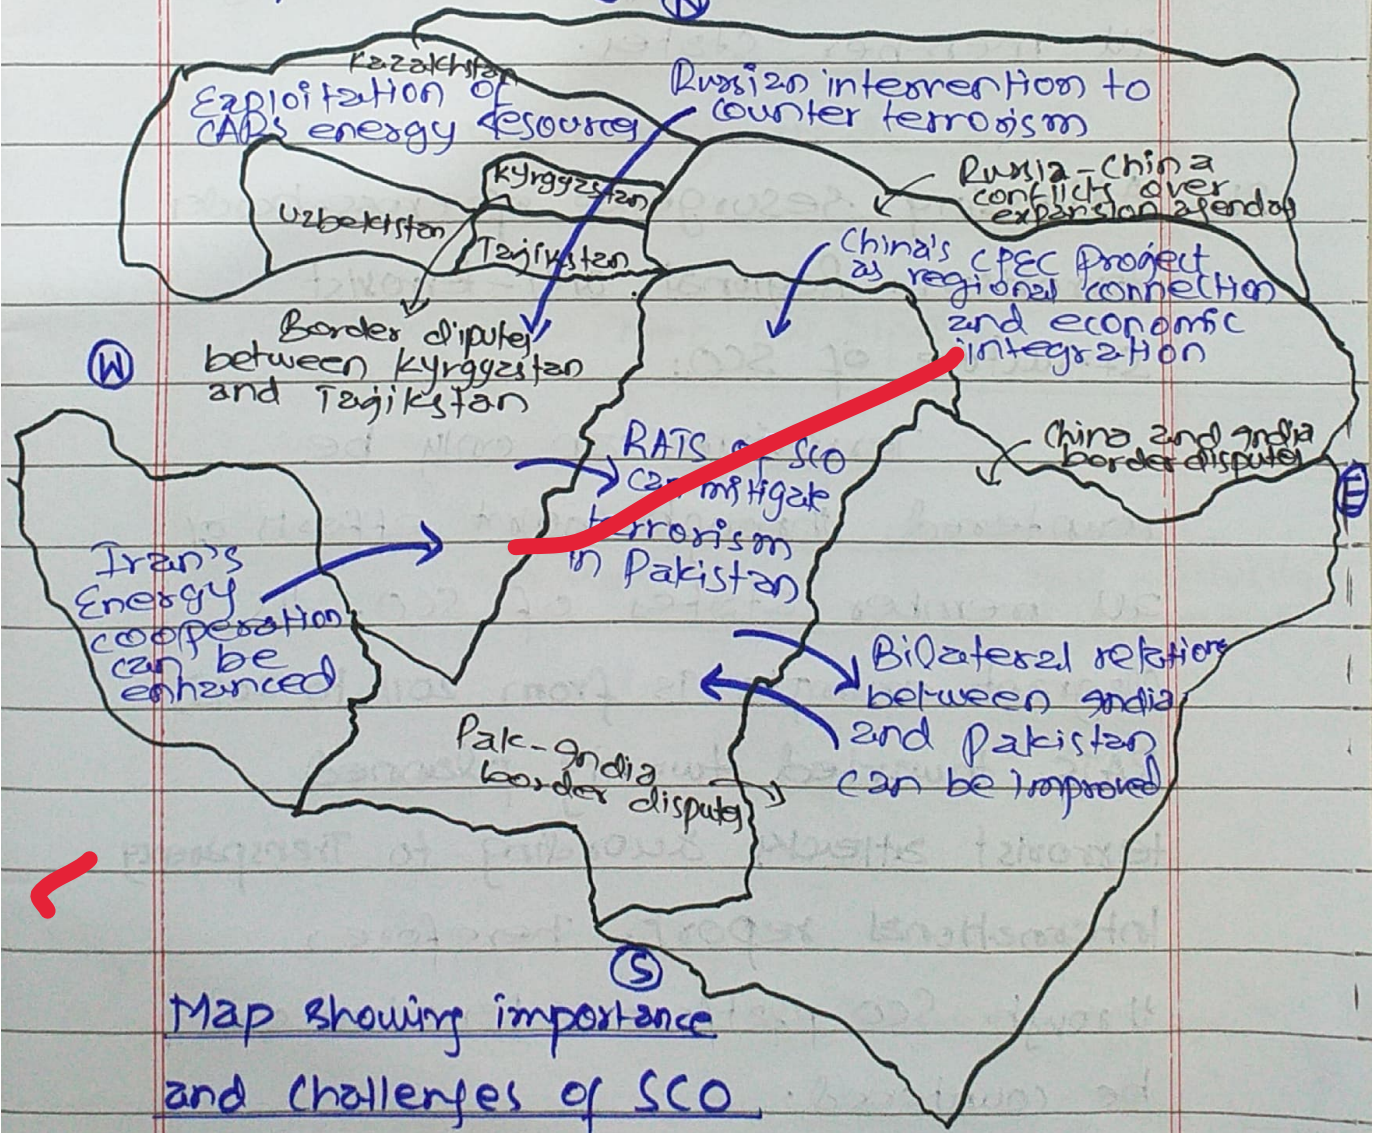 N
Kazakhstan
Exploitation of
CARs energy resources
Russian intervention to
counter terrorism
Kyrgyzstan
Uzbekistan
Tajikstan
Russia-China
conflicts over
expansion agendas
China's CPEC Project
as regional connection
and economic
integration
Border diputes
between Kyrgyzstan
and Tajikstan
W
RATS of SCO
can mitigate
terrorism
in Pakistan
China and India
border disputes
E
Iran's
Energy
cooperation
can be
enhanced
Bilateral relations
between India
and Pakistan
can be improved
Pak-India
border disputes
S
Map showing importance
and challenges of SCO